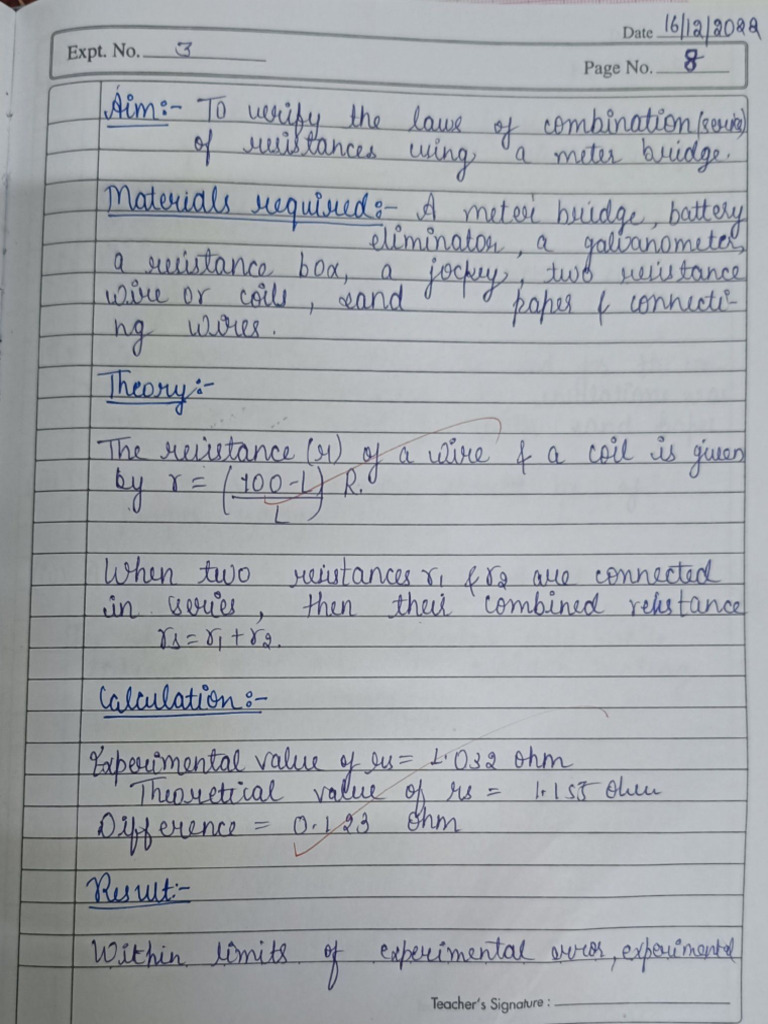 Date 16/12/2022
Expt. No. 3
Page No. 8
Aim:- To verify the laws of combination (series)
of resistances using a meter bridge.
Materials required:- A meter bridge, battery
eliminator, a galvanometer,
a resistance box, a jockey, two resistance
wire or coils, sand paper & connecti-
ng wires.
Theory:-
The resistance (r) of a wire & a coil is given
by r = (100-l / L) R.
When two resistances r1 & r2 are connected
in series, then their combined resistance
rs = r1 + r2.
Calculation:-
Experimental value of rs = 1.032 ohm
Theoretical value of rs = 1.155 ohm
Difference = 0.123 ohm
Result:-
Within limits of experimental error, experimental
Teacher's Signature :